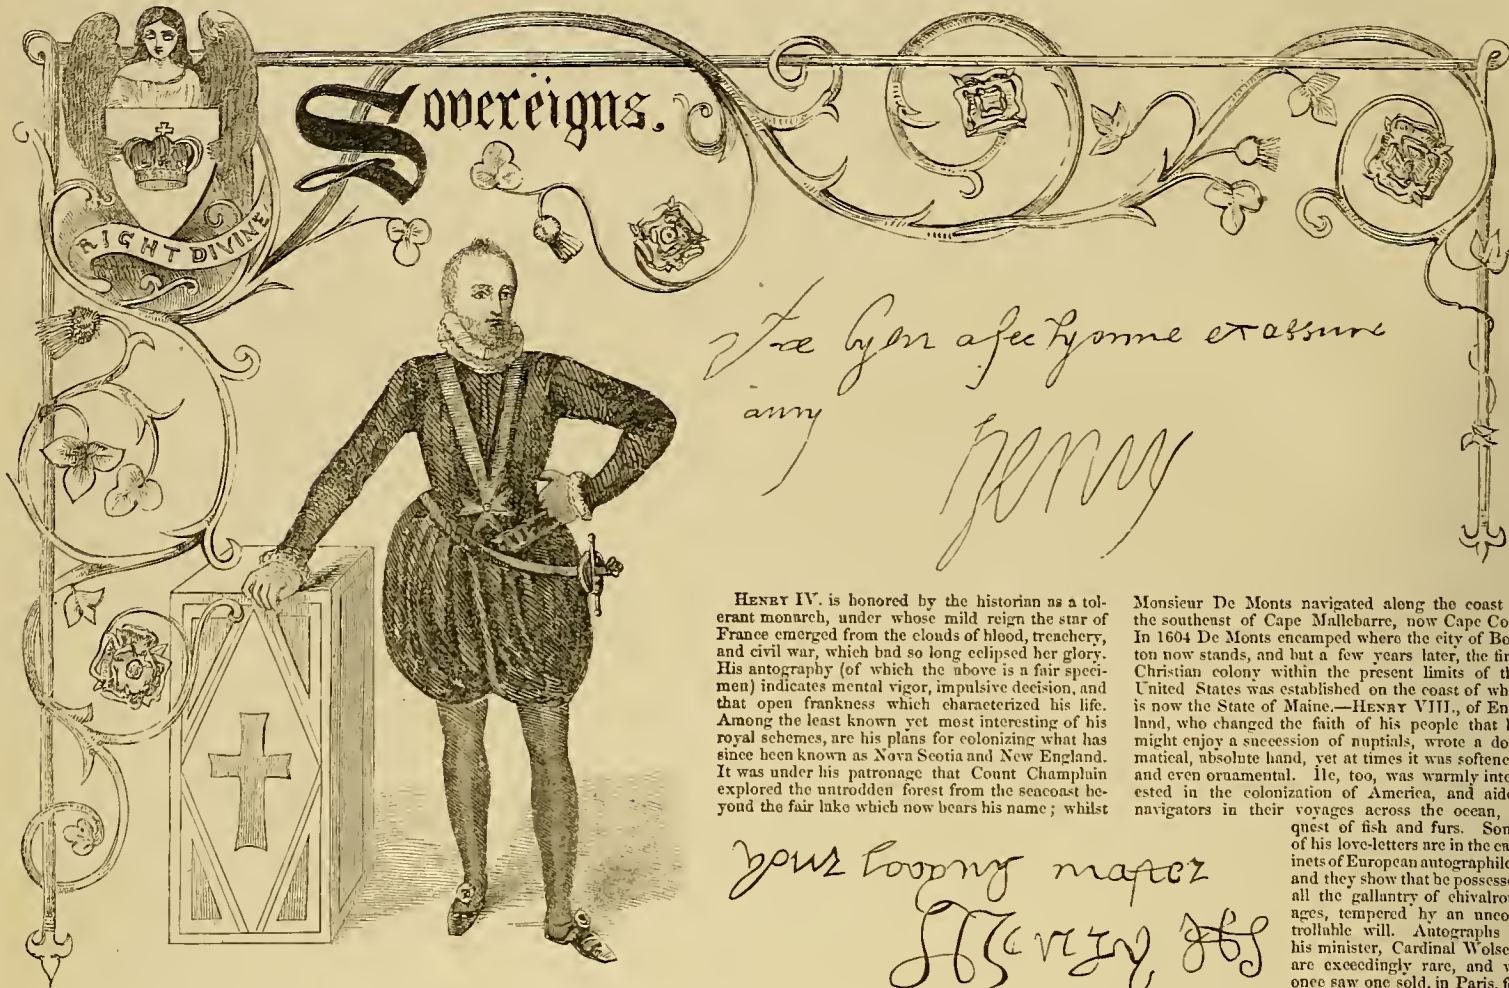 Sovereigns.
RIGHT DIVINE
byen afectyonne et assure
amy
Henry
HENRY IV. is honored by the historian as a tol-
erant monarch, under whose mild reign the star of
France emerged from the clouds of blood, treachery,
and civil war, which had so long eclipsed her glory.
His autography (of which the above is a fair speci-
men) indicates mental vigor, impulsive decision, and
that open frankness which characterized his life.
Among the least known yet most interesting of his
royal schemes, are his plans for colonizing what has
since been known as Nova Scotia and New England.
It was under his patronage that Count Champlain
explored the untrodden forest from the seacoast be-
yond the fair lake which now bears his name; whilst
Monsieur De Monts navigated along the coast
the southeast of Cape Mallebarre, now Cape Co
In 1604 De Monts encamped where the city of Bo
ton now stands, and but a few years later, the fir
Christian colony within the present limits of th
United States was established on the coast of wh
is now the State of Maine.—HENRY VIII., of En
land, who changed the faith of his people that
might enjoy a succession of nuptials, wrote a do
matical, absolute hand, yet at times it was softene
and even ornamental. He, too, was warmly inte
ested in the colonization of America, and aide
navigators in their voyages across the ocean,
quest of fish and furs. Som
of his love-letters are in the ca
inets of European autographil
and they show that he possesse
all the gallantry of chivalro
ages, tempered by an unco
trollable will. Autographs
his minister, Cardinal Wolse
are exceedingly rare, and w
once saw one sold, in Paris, f
your lovyng master
Henry